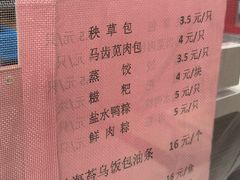 秧草包 3.5元/只
马齿苋肉包 4元/只
蒸饺 3.5元/只
糍粑 4元/块
盐水鸭粽 5元/只
鲜肉粽 5元/只
海苔乌饭包油条 16元/个
16元/